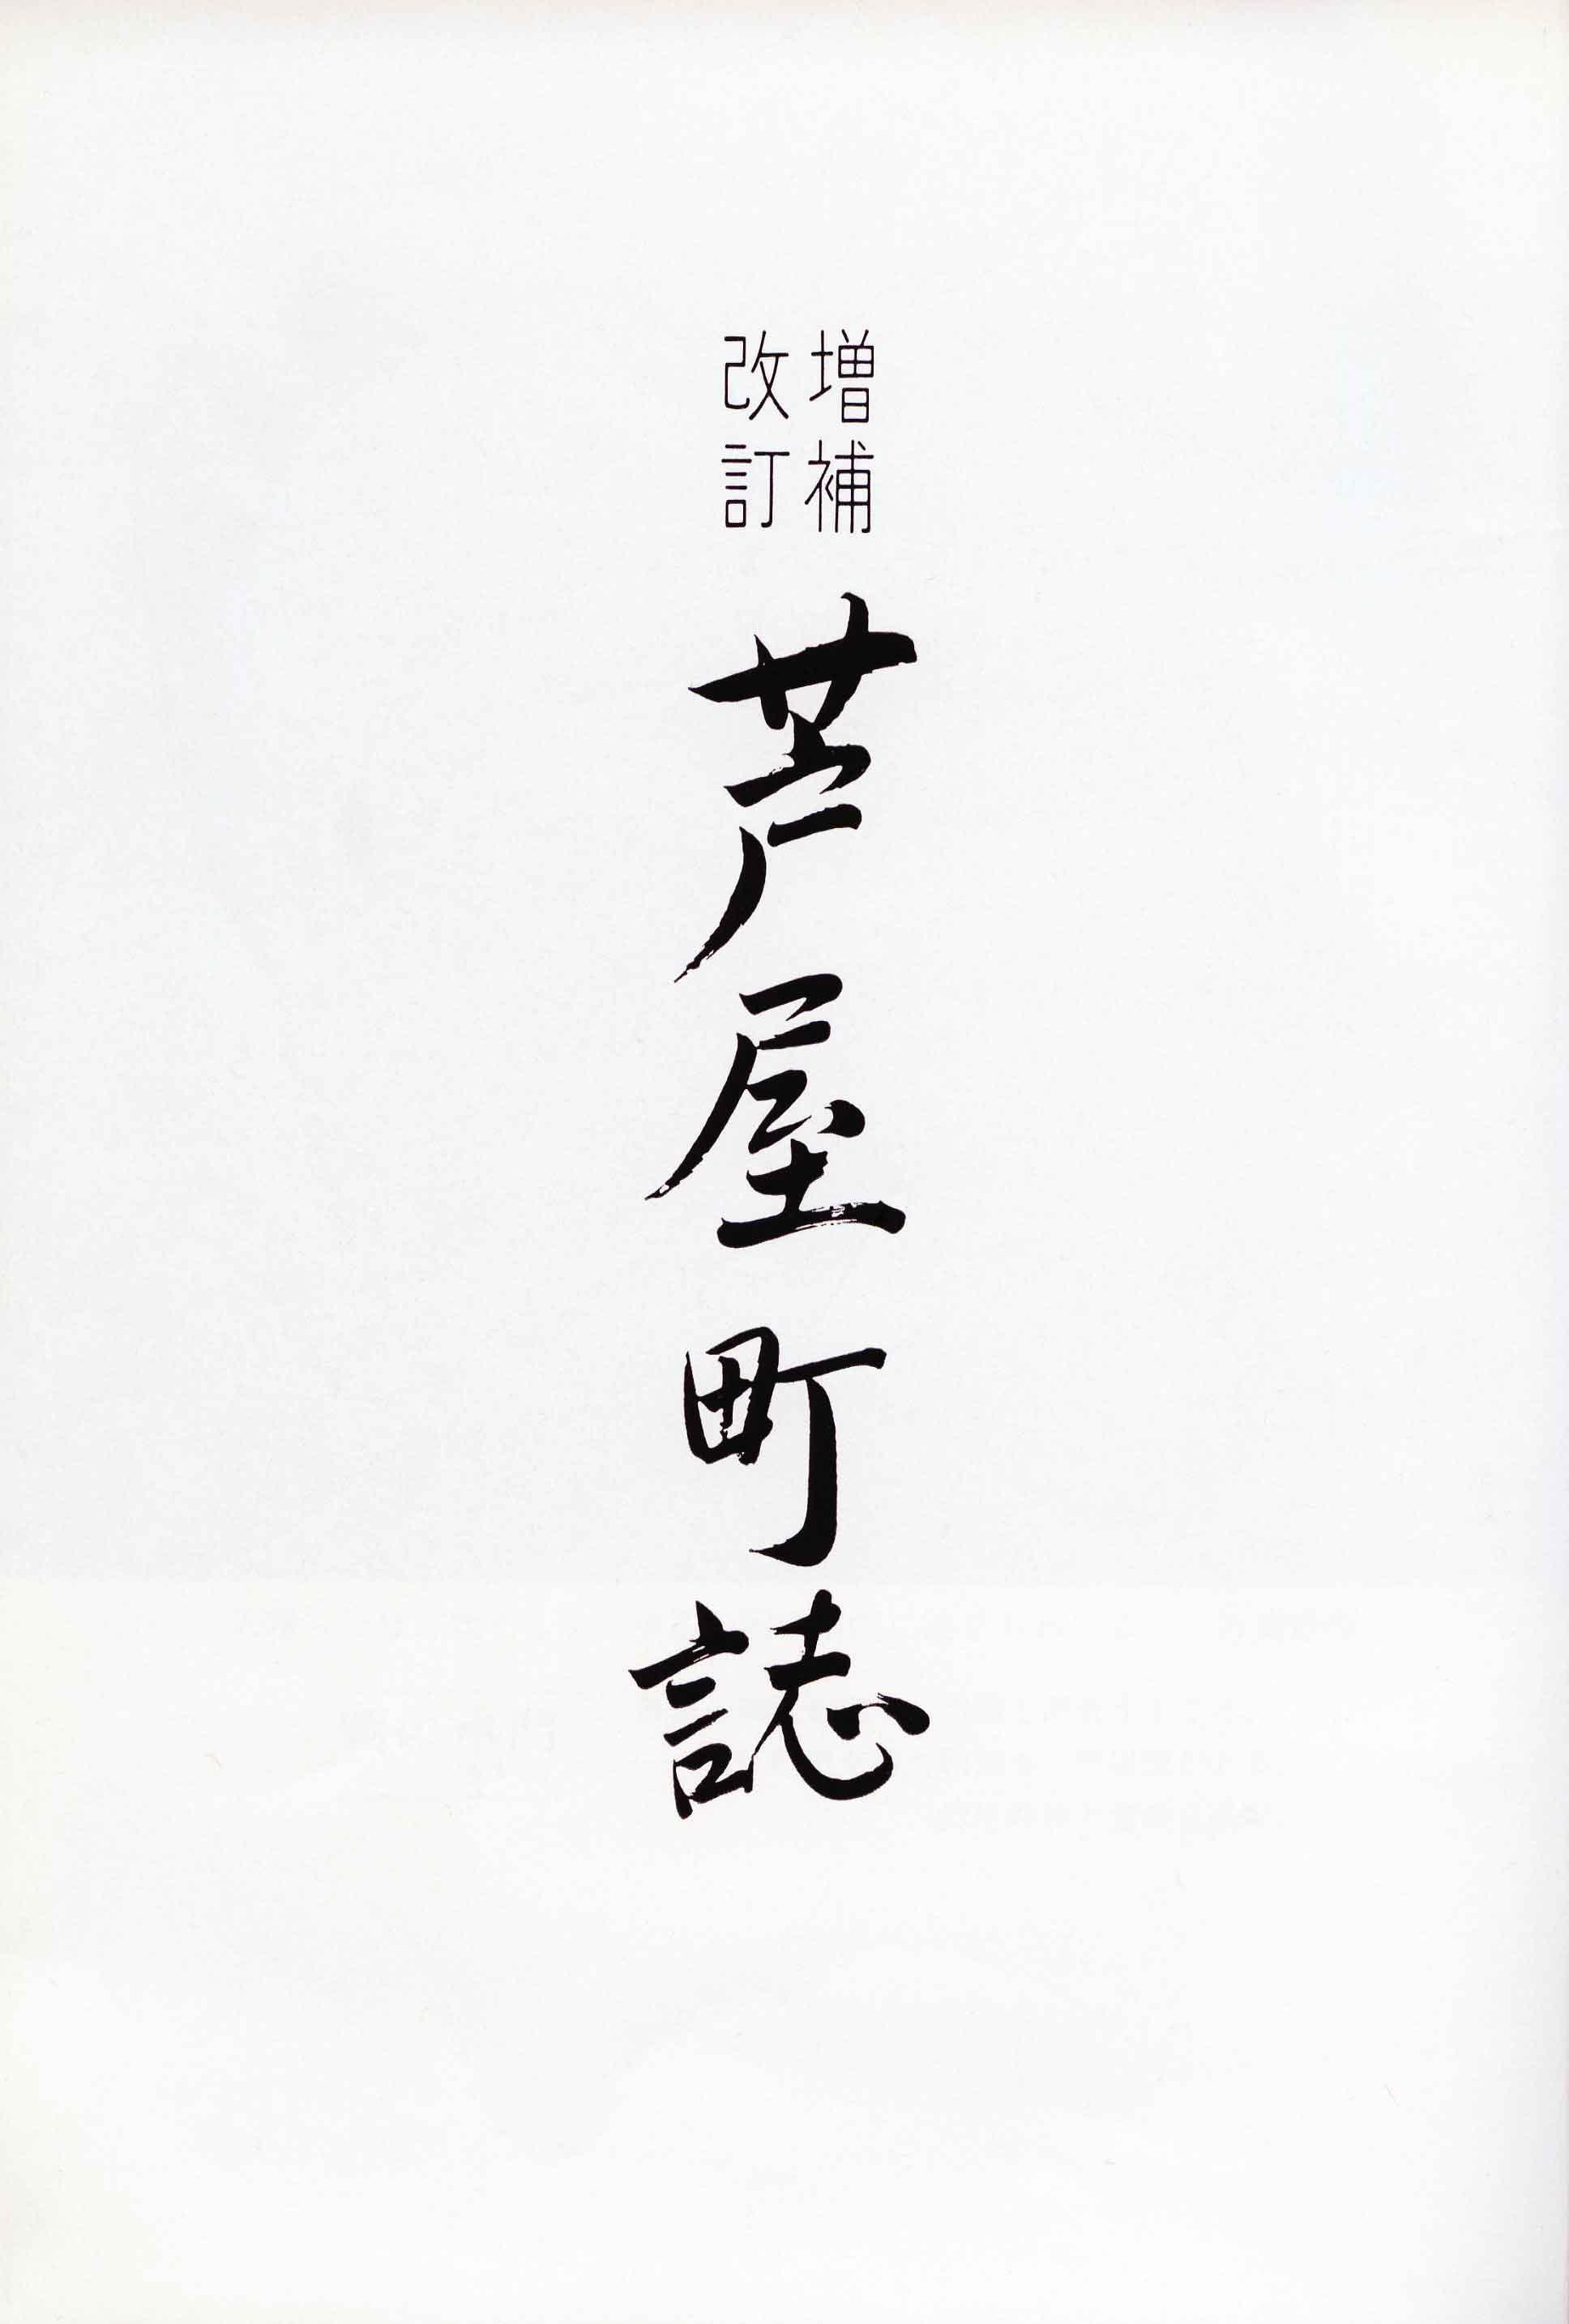 増補
改訂
芦屋町誌